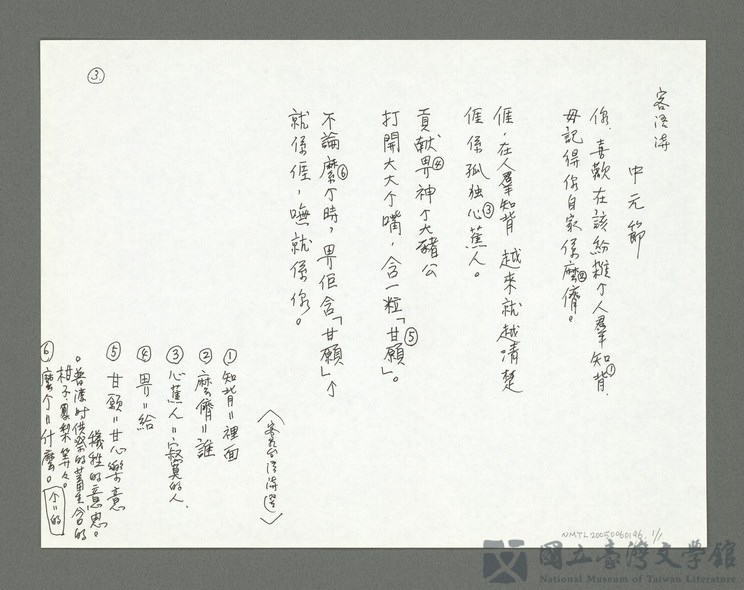 客語詩
中元節
你.喜歡在該紛雜个人羣知背①.
毋記得你自家係麼儕②。
𠊎,在人羣知背 越來就越清楚
𠊎係孤独心蕉人③。
貢献畀④神个大豬公
打開大大个嘴,含一粒「甘願」⑤。
不論麼个⑥時,畀佢含「甘願」个
就係𠊎,嘸就係你。
〈客家台語詩選〉
①知背=裡面
②麼儕=誰
③心蕉人=寂寞的人.
④畀=給
⑤甘願=甘心樂意
犠牲的意思。
。普渡時供祭的豬公含的
柑子、鳳梨等々。
⑥麼个=什麼。
个=的
③.
NMTL20050060196, 1/1
國立臺灣文學館
National Museum of Taiwan Literature